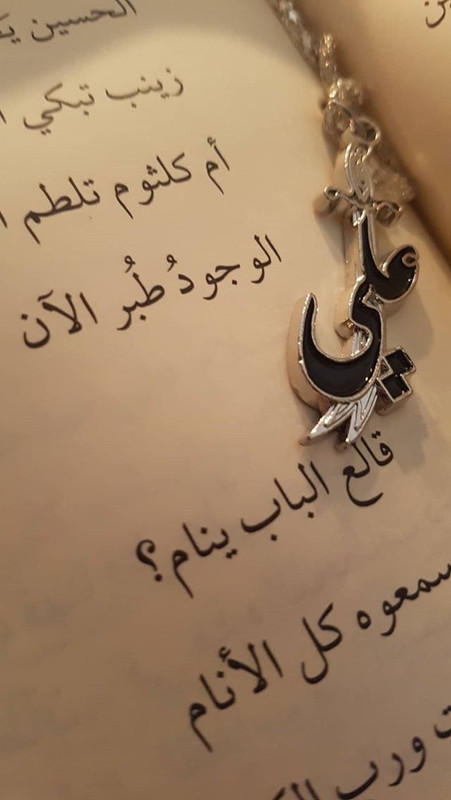 الحسين
زينب تبكي
أم كلثوم تلطم
الوجودُ طُبر الآن
علي
قالع الباب ينام؟
سمعوه كل الأنام
ورب